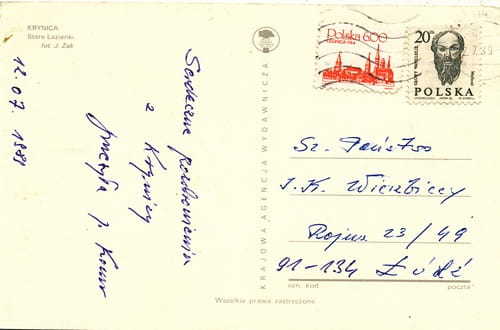 KRYNICA
Stare Łazienki
fot. J. Żak
12.07.1989
Serdeczne pozdrowienia
z Krynicy
przesyła
KRAJOWA AGENCJA WYDAWNICZA
Polska 6.00
LEGNICA 1744
20 zł
POLSKA
Sz. Państwo
J.K. Wierzbiccy
Rojna 23/49
91-134 Łódź
ozn. kod.
poczta
Wszelkie prawa zastrzeżone